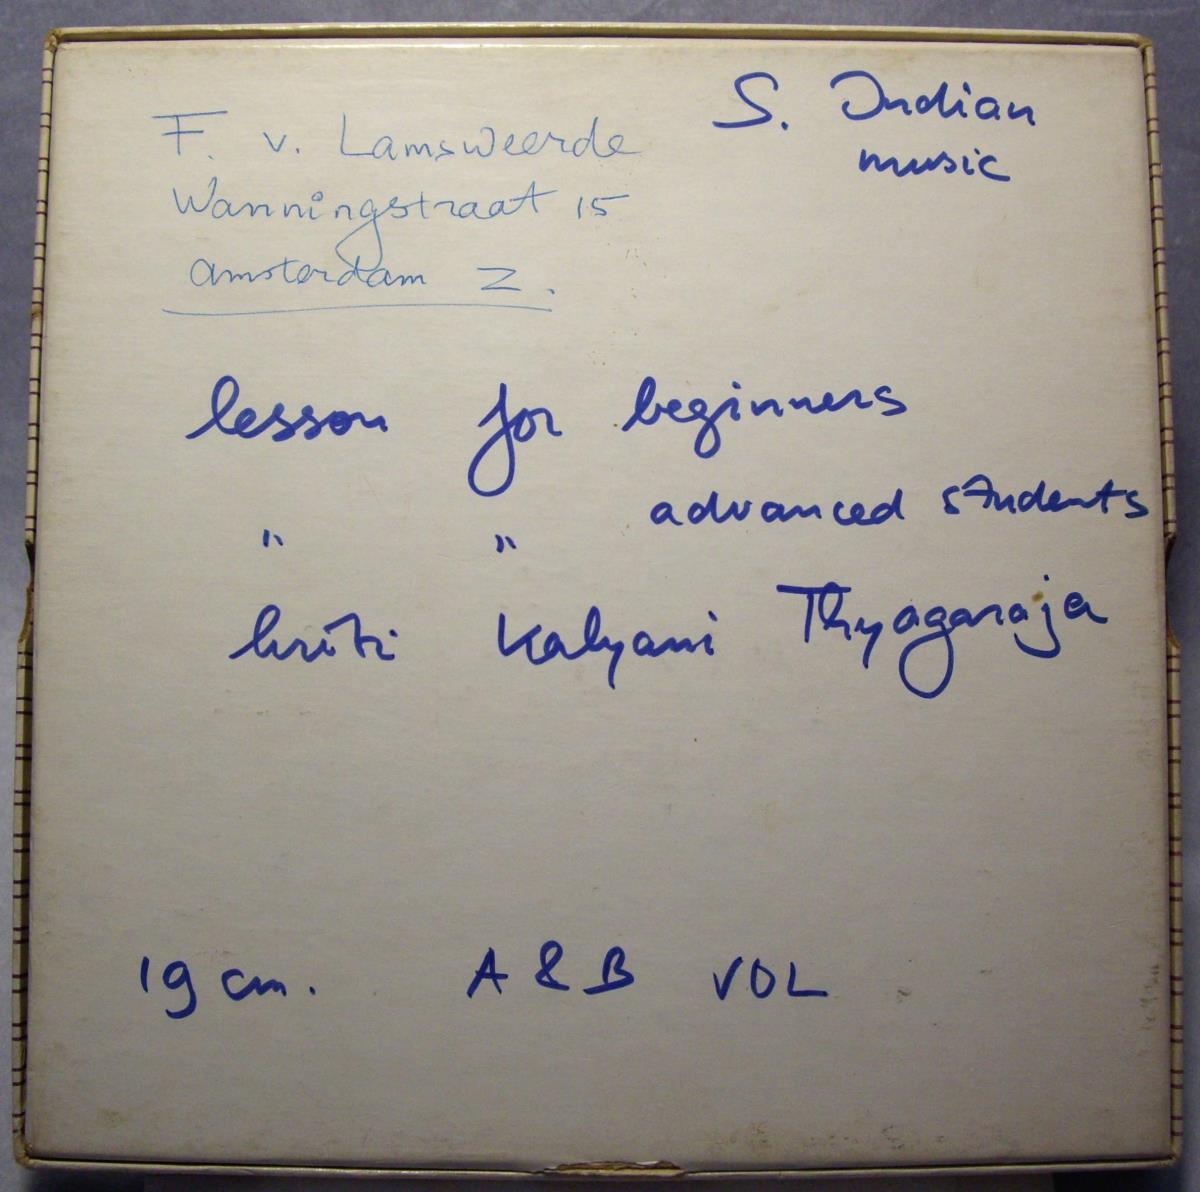 S. Indian
music
F. v. Lamsweerde
Wanningstraat 15
Amsterdam Z.
lesson for beginners
" " advanced students
kriti Kalyani Thyagaraja
19 cm. A & B VOL